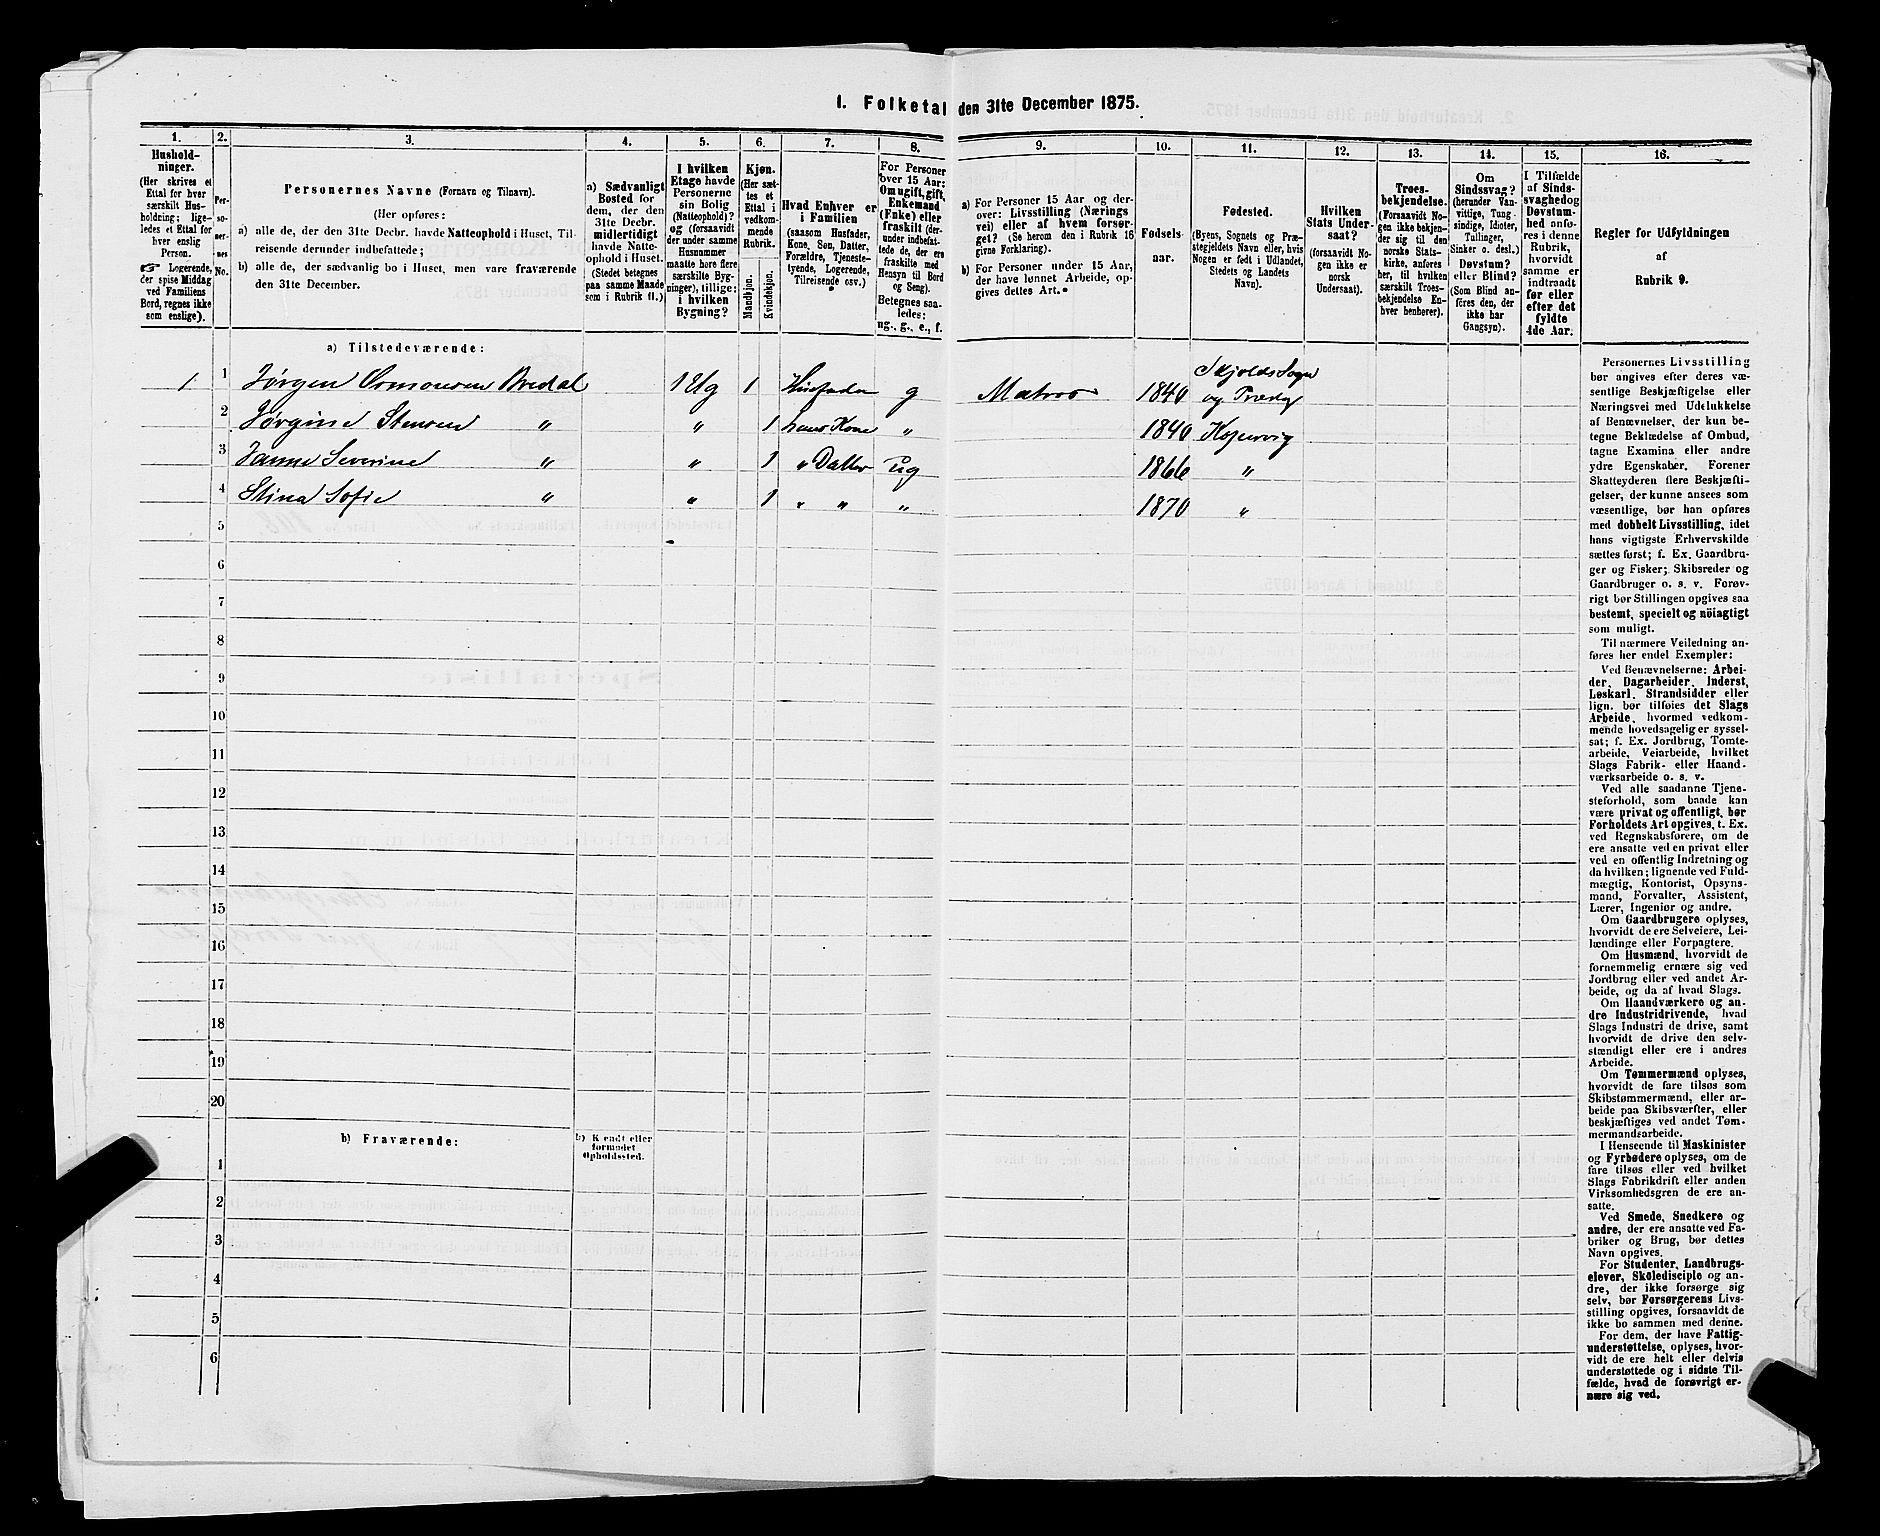 1. Folketal den 31te December 1875.
1.
Hushold-
ninger.
(Her skrives et
Ettal for hver
særskilt Hus-
holdning; lige-
ledes et Ettal for
hver enslig
Person.
☞ Logerende,
der spise Middag
ved Familiens
Bord, regnes ikke
som enslige).
2.
Per-
so-
ner-
nes
No.
3.
Personernes Navne (Fornavn og Tilnavn).
(Her opføres:
a) alle de, der den 31te Decbr. havde Natteophold i Huset, Til-
reisende derunder indbefattede;
b) alle de, der sædvanlig bo i Huset, men vare fraværende
den 31te December.
4.
a) Sædvanligt
Bosted for
dem, der den
31te Decbr.
midlertidigt
havde Natte-
ophold i Huset.
(Stedet betegnes
paa samme Maade
som i Rubrik 11.)
5.
I hvilken
Etage havde
Personerne
sin Bolig
(Natteophold)?
og (forsaavidt
der under samme
Husnummer
maatte høre flere
særskilte Byg-
ninger), tillige:
i hvilken
Bygning?
6.
Kjøn.
(Her sæt-
tes et
Ettal i
vedkom-
mende
Rubrik.
Mandkjøn.
Kvindekjøn.
7.
Hvad Enhver er
i Familien
(saasom Husfader,
Kone, Søn, Datter,
Forældre, Tjeneste-
tyende, Logerende,
Tilreisende osv.)
8.
For Personer
over 15 Aar:
Om ugift, gift,
Enkemand
(Enke) eller
fraskilt (der-
under indbefat-
tede de, der ere
fraskilte med
Hensyn til Bord
og Seng).
Betegnes saa-
ledes:
ug., g., e., f.
9.
a) For Personer 15 Aar og der-
over: Livsstilling (Nærings
vei) eller af hvem forsør-
get? (Se herom den i Rubrik 16
givne Forklaring).
b) For Personer under 15 Aar,
der have lønnet Arbeide, op-
gives dettes Art.
10.
Fødsels-
aar.
11.
Fødested.
(Byens, Sognets og Præ-
stegjeldets Navn eller, hvis
Nogen er født i Udlandet,
Stedets og Landets
Navn).
12.
Hvilken
Stats Under-
saat?
(forsaavidt No-
gen ikke er
norsk
Undersaat).
13.
Troes-
bekjendelse.
(Forsaavidt No-
gen ikke bekjen-
der sig til den
norske Stats-
kirke, anføres
her, til hvilken
særskilt Troes-
bekjendelse En-
hver henhører).
14.
Om
Sindssvag?
(herunder Van-
vittige, Tung-
sindige, Idioter,
Tullinger,
Sinker o. desl.)
Døvstum?
eller Blind?
(Som Blind an-
føres den, der
ikke har
Gangsyn).
15.
I Tilfælde
af Sinds-
svaghed og
Døvstum-
hed anfø-
res i denne
Rubrik,
hvorvidt
samme er
indtraadt
før eller
efter det
fyldte
4de Aar.
16.
Regler for Udfyldningen
af
Rubrik 9.
a) Tilstedeværende:
1 1 Jørgen Osmonsen Bredal 1 Etg 1 Husfader g Matros 1840 Skjolds Sogn
og Præstg
2 Jørgine Stensen " " 1 hans Kone " 1840 Kopervig
3 Janne Severine " " 1 " Datter ug 1866 "
4 Stina Sofie " " 1 " " " 1870 "
5
6
7
8
9
10
11
12
13
14
15
16
17
18
19
20
b) Fraværende:
b) Kjendt eller
formodet
Opholdssted.
1
2
3
4
5
6
Personernes Livsstilling
bør angives efter deres væ-
sentlige Beskjæftigelse eller
Næringsvei med Udelukkelse
af Benævnelser, der kun be-
tegne Beklædelse af Ombud,
tagne Examina eller andre
ydre Egenskaber. Forener
Skatteyderen flere Beskjæfti-
gelser, der kunne ansees som
væsentlige, bør han opføres
med dobbelt Livsstilling, idet
hans vigtigste Erhvervskilde
sættes først; f. Ex. Gaardbru-
ger og Fisker; Skibsreder og
Gaardbruger o. s. v. Forøv-
rigt bør Stillingen opgives saa
bestemt, specielt og nöiagtigt
som muligt.
Til nærmere Veiledning an-
føres her endel Exempler:
Ved Benævnelserne: Arbei-
der, Dagarbeider, Inderst,
Løskarl, Strandsidder eller
lign. bør tilføies det Slags
Arbeide, hvormed vedkom-
mende hovedsagelig er syssel-
sat; f. Ex. Jordbrug, Tomte-
arbeide, Veiarbeide, hvilket
Slags Fabrik- eller Haand-
værksarbeide o. s. v.
Ved alle saadanne Tjene-
steforhold, som baade kan
være privat og offentligt, bør
Forholdets Art opgives, t. Ex.
ved Regnskabsførere, om de
ere ansatte ved en privat eller
ved en offentlig Indretning og
da hvilken; lignende ved Fuld-
mægtig, Kontorist, Opsyns-
mand, Forvalter, Assistent,
Lærer, Ingeniør og andre.
Om Gaardbrugere oplyses,
hvorvidt de ere Selveiere, Lei-
lændinge eller Forpagtere.
Om Husmænd, hvorvidt de
fornemmelig ernære sig ved
Jordbrug eller ved andet Ar-
beide, og da af hvad Slags.
Om Haandværkere og an-
dre Industridrivende, hvad
Slags Industri de drive, samt
hvorvidt de drive den selv-
stændigt eller ere i andres
Arbeide.
Om Tømmermænd oplyses,
hvorvidt de fare tilsøs som
Skibstømmermænd, eller ar-
beide paa Skibsværfter, eller
beskjæftiges ved andet Tøm-
mermandsarbeide.
I Henseende til Maskinister
og Fyrbødere oplyses, om de
fare tilsøs eller ved hvilket
Slags Fabrikdrift eller anden
Virksomhedsgren de ere an-
satte.
Ved Smede, Snedkere og
andre, der ere ansatte ved Fa-
briker og Brug, bør dettes
Navn opgives.
For Studenter, Landbrugs-
elever, Skoledisciple og an-
dre, der ikke forsørge sig
selv, bør Forsørgerens Livs-
stilling opgives, forsaavidt de
ikke bo sammen med denne.
For dem, der have Fattig-
understøttelse, oplyses, hvor-
vidt de ere helt eller delvis
understøttede og i sidste Til-
fælde, hvad de forøvrigt er-
nære sig ved.